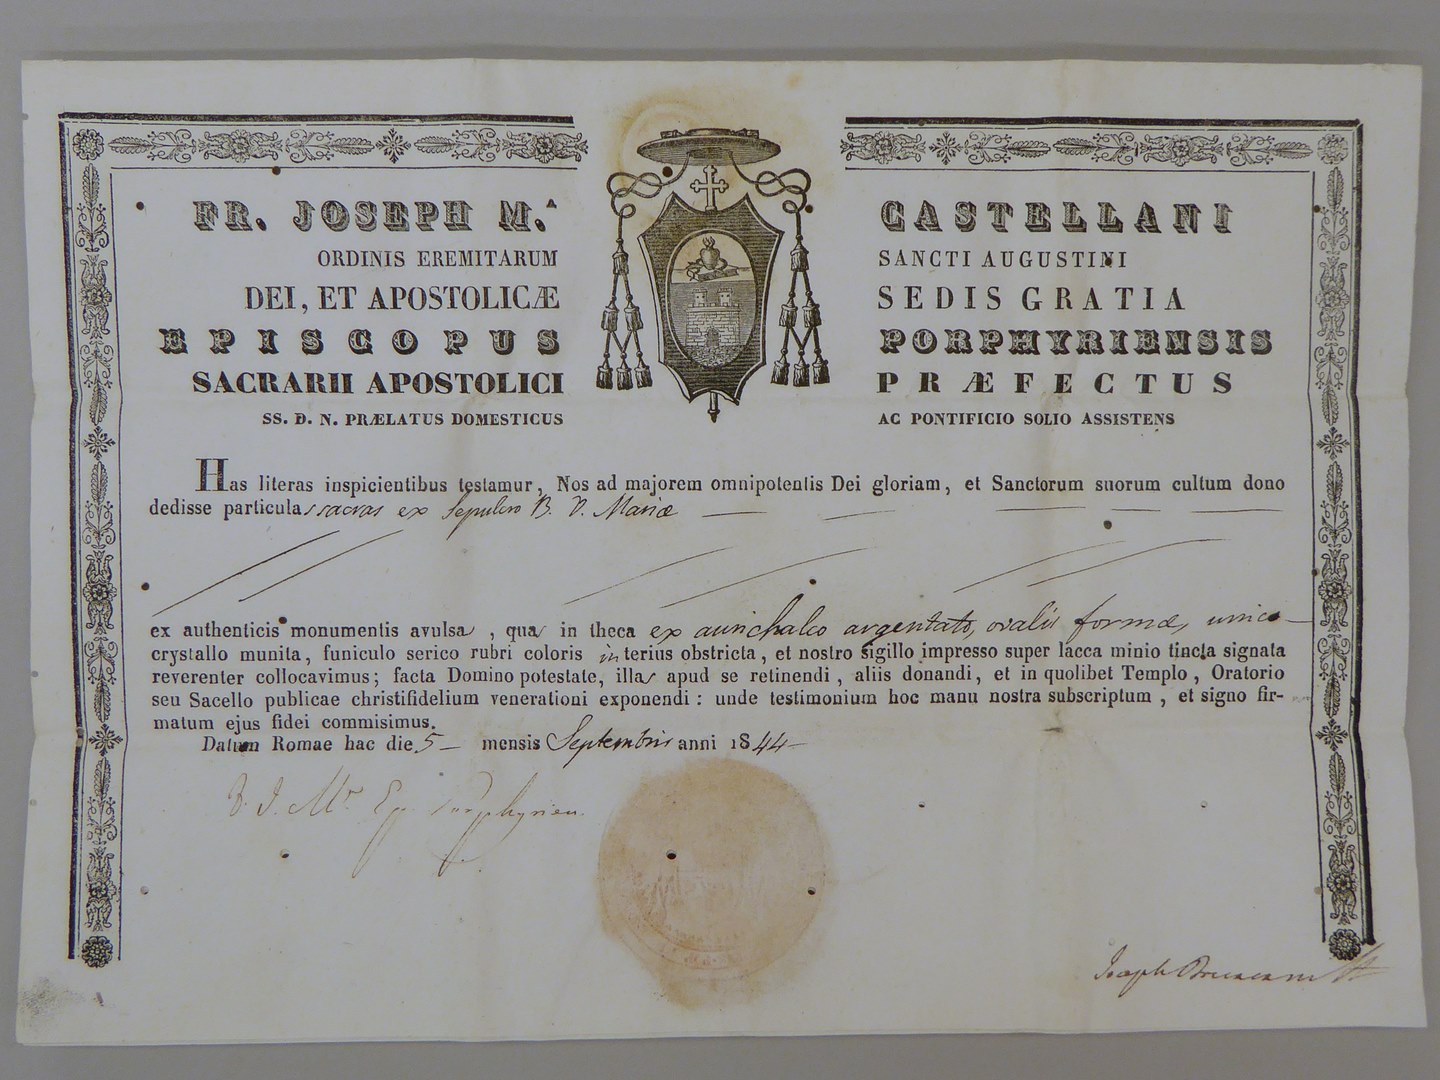 FR. JOSEPH M.ᴬ CASTELLANI
ORDINIS EREMITARUM SANCTI AUGUSTINI
DEI, ET APOSTOLICÆ SEDIS GRATIA
EPISCOPUS PORPHYRIENSIS
SACRARII APOSTOLICI PRÆFECTUS
SS. D. N. PRÆLATUS DOMESTICUS AC PONTIFICIO SOLIO ASSISTENS
Has literas inspicientibus testamur, Nos ad majorem omnipotentis Dei gloriam, et Sanctorum suorum cultum dono
dedisse particulas sacras ex Sepulcro B. V. Mariæ
ex authenticis monumentis avulsas, quas in theca ex aurichalco argentato, ovalis formæ, unico
crystallo munita, funiculo serico rubri coloris interius obstricta, et nostro sigillo impresso super lacca minio tincta signata
reverenter collocavimus; facta Domino potestate, illas apud se retinendi, aliis donandi, et in quolibet Templo, Oratorio
seu Sacello publicae christifidelium venerationi exponendi: unde testimonium hoc manu nostra subscriptum, et signo fir-
matum ejus fidei commisimus.
Datum Romae hac die 5 mensis Septembris anni 1844
F. J. Mᵃ Ep. Porphyrien.
Joseph